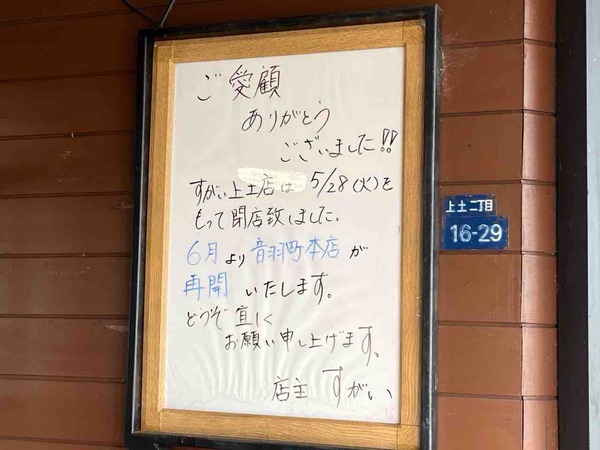 ご愛顧
ありがとう
ございました!!
すがい上土店は 5/28(火)を
もって閉店致しました。
6月より音羽町本店が
再開いたします。
どうぞ宜しく
お願い申し上げます。
店主 すがい
上土二丁目
16-29